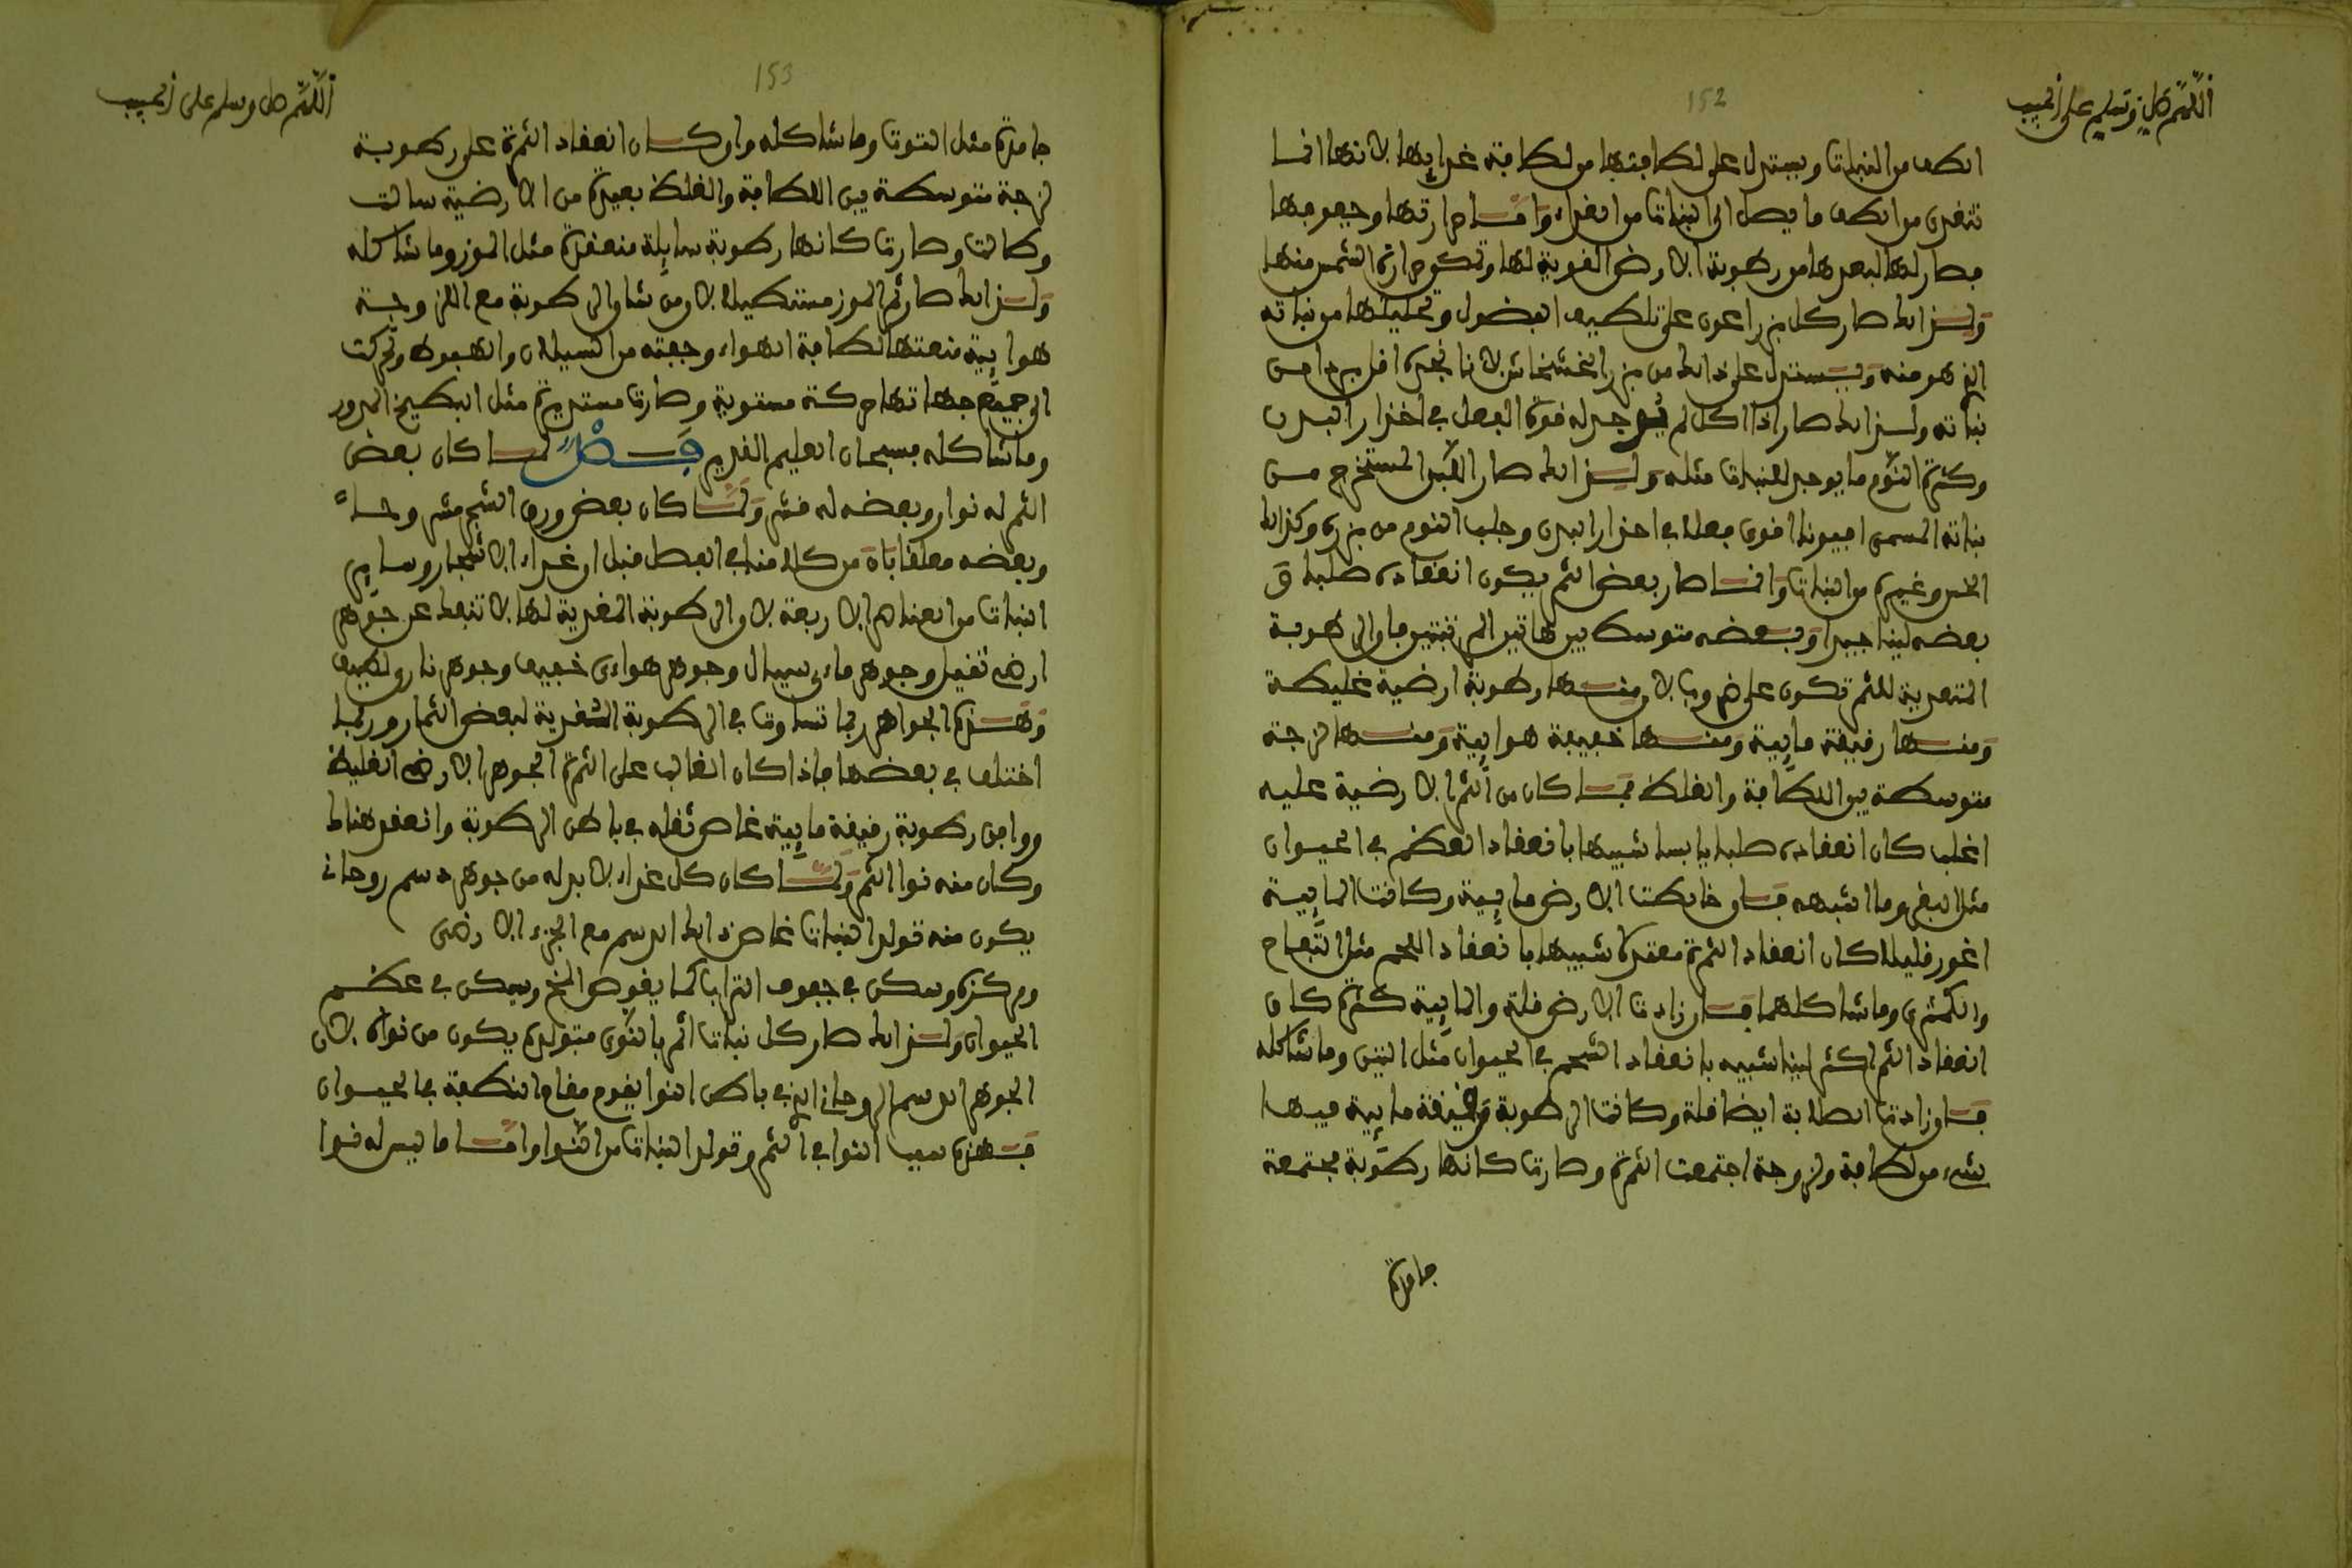 152
اللهم صل وسلم على الحبيب
الطف من النبات ويستدل على لطافتها من لطافة غذايها لانها انما
تتغذى من الطف ما يصل الى النبات من الغذاء واما حرارتها وجفوفها
فصار لها لبعدها من رطوبة الارض القوية لها وتكون حرارة الشمس منها
ولذلك صار كل بزر اعون على تلطيف الفضول وتحليلها من نباته
الذي هو منه ويستدل على ذلك من بزر الخشخاش لانا نجده اقل بردا من
نباته ولذلك صار اذا اكل لم يوجد له قوة الفعل في اخدار البدن
وكثرة النوم ما يوجد للنبات مثله ولذلك صار اللبن المستخرج من
نباته المسمى افيونا اقوى فعلا في اخدار البدن وجلب النوم من بزره وكذلك
الخس وغيره من النبات واما صار بعض الثمر يكون انعقاده صلبا و
بعضه لينا جيدا وبعضه متوسطا بين هاتين المرتبتين فان الرطوبة
المتغدية للثمر تكون على ضروب لان منها رطوبة ارضية غليظة
ومنها رقيقة مايية ومنها خفيفة هوايية ومنها لزجة
متوسطة بين اللطافة والغلظ فما كان من الثمر الارضية عليه
اغلب كان انعقاده صلبا يابسا شبيها بانعقاد العظم في الحيوان
مثل البقر وما اشبهه فان خالطت الارض مايية وكانت المايية
اغور قليلا كان انعقاد الثمرة معتدلا شبيها بانعقاد اللحم مثل التفاح
والكمثرى وما شاكلهما فان زادت الارض قلة والمايية كثرة كان
انعقاد الثمر اكثر لينا شبيه بانعقاد الشحم في الحيوان مثل التين وما شاكله
فان زادت الصلابة ايضا قلة وكانت الرطوبة رقيقة مايية فيها
شيء من لطافة ولزوجة اجتمعت الثمرة وصارت كانها رطوبة مجتمعة
جامدة
153
اللهم صل وسلم على الحبيب
جامدة مثل التوت وما شاكله وان كان انعقاد الثمرة على رطوبة
لزجة متوسطة بين اللطافة والغلظ بعيدة من الارضية سالت
وطالت وصارت كانها رطوبة سايلة منعقدة مثل الموز وما شاكله
ولذلك صار ثمر الموز مستطيلا لان من شان الرطوبة مع اللزوجة
هوايية منعتها لطافة الهواء وخفته من السيلان والهبوط وتحركت
الى جميع جهاتها حركة مستوية وصارت مستديرة مثل البطيخ المدور
وما شاكله فسبحان العليم القدير فصل لما كان بعض
الثمر له نوار وبعضه له قشر ولما كان بعض ورق الشجر مشروحا
وبعضه معلقا بان من كلامنا في الفصل قبل ان غذاء الاشجار وساير
النبات من العناصر الاربعة لان الرطوبة المغذية لها لا تنفك عن جوهر
ارضي ثقيل وجوهر ماءي سيال وجوهر هواءي خفيف وجوهر ناري لطيف
وهذه الجواهر ربما تساوت في الرطوبة المغذية لبعض الثمار وربما
اختلف في بعضها فاذا كان الغالب على الثمرة الجوهر الارضي الغليظ
ووافق رطوبة رقيقة مايية غاص ثقله في باطن الرطوبة وانعقد هناك
وكان منه نوا الثمر ولما كان كل غذاء لابد له من جوهر دسم روحاني
يكون منه تولد النبات غاص ذلك الدسم مع الجزء الارضي
ومركزه وسكن في جوف التراب كما يغوص المخ ويسكن في عظم
الحيوان ولذلك صار كل نبات اثمر بالنوى متولده يكون من نواه لان
الجوهر الدسم الروحاني الذي في باطن النوا يقوم مقام النطفة في الحيوان
فهذه سبب النوا في الثمر وتولد النبات من النوا واما ما ليس له نوا